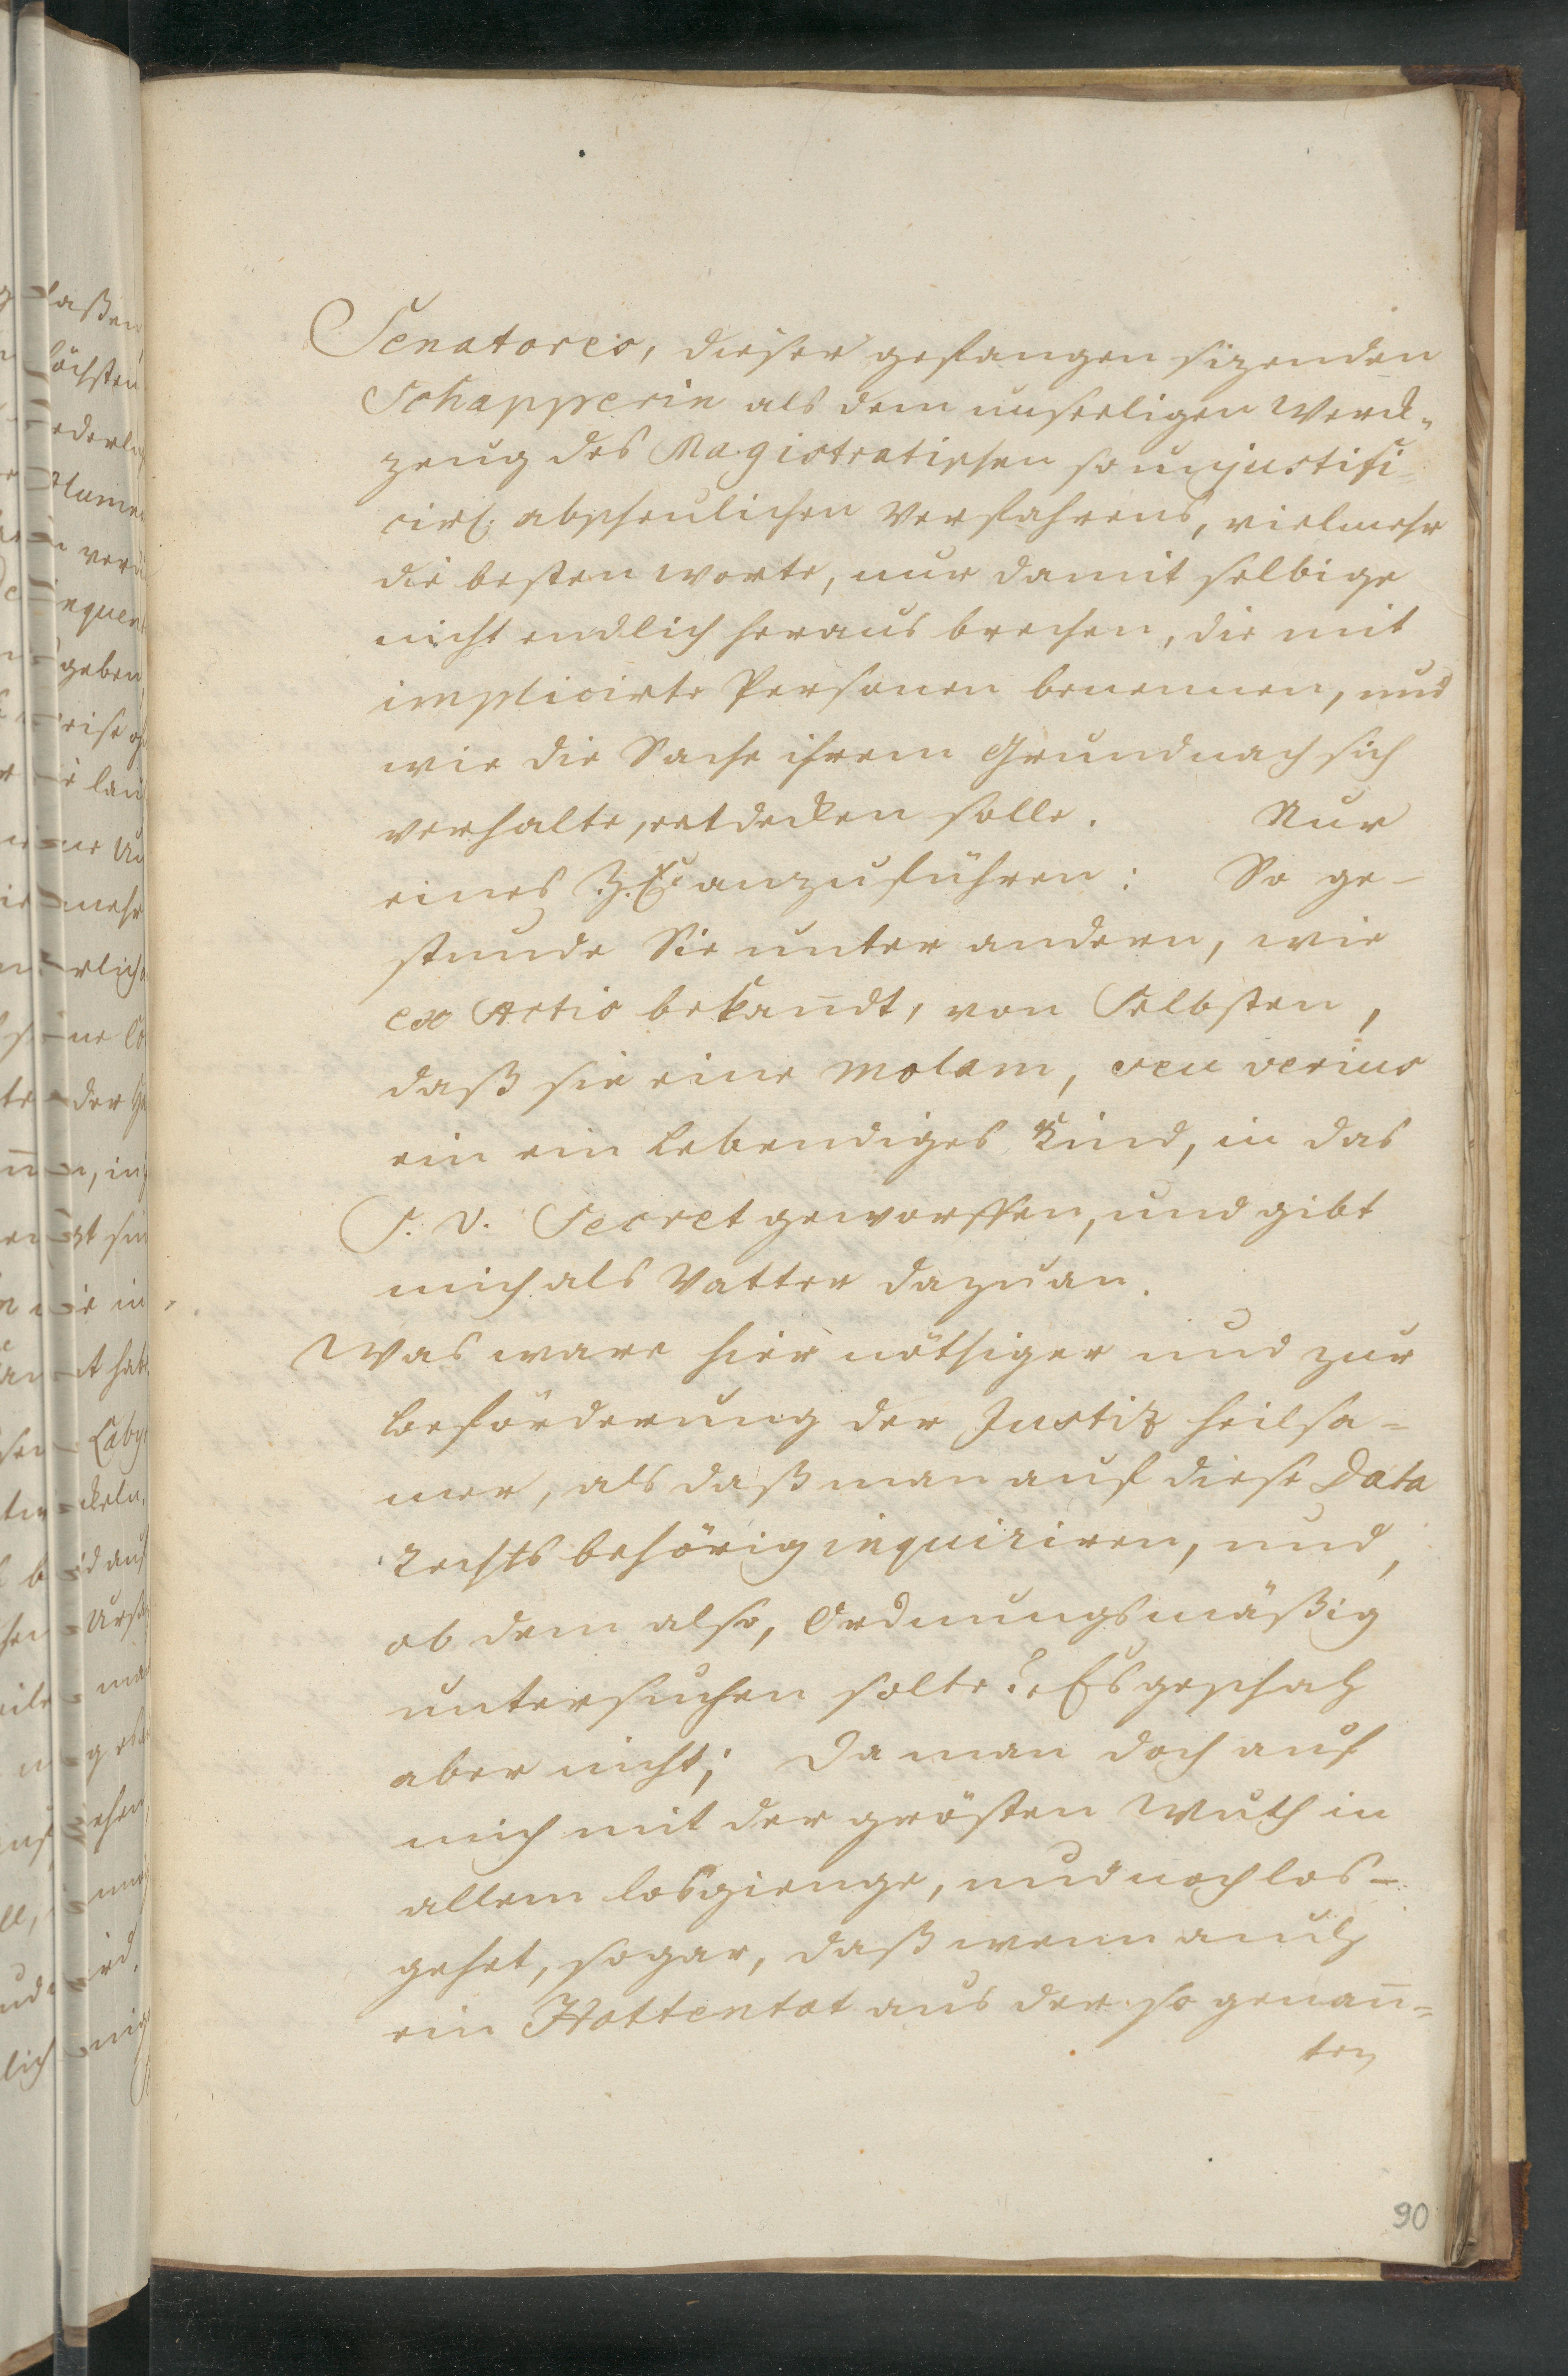 Senatores, dieser gefangen sizenden
Schapperin als dem unseeligen Werck-
zeug des Magistratischen so unjustifi-
cirl. abscheulichen Verfahrens, vielmehr
die besten worte, nur damit selbige
nicht endlich heraus brechen, die mit
implicirte Personen benennen, und
wie die Sache ihrem Grund nach sich
verhalte, entdecken solle. Nur
eines z. E. anzuführen: So ge-
stunde Sie unter andern, wie
ex Actis bekan̄dt, von Selbsten,
daß sie eine molam, seu verius
ein ein Lebendiges Kind, in das
S. v. Secret geworffen, und gibt
mich als Vatter dazu an.
Was ware hier nöthiger und zur
beförderung der Justiz heilsa-
mer, als daß man auf diese Data
Rechts behörig inquiriren, und,
ob dem also, Ordnungsmäßig
untersuchen solte? Es geschah
aber nicht; Da man doch auf
mich mit der grösten Wuth in
allem losgienge, und noch los-
gehet, sogar, daß wenn auch
ein Hottentot aus der so genan̄-
ten
90